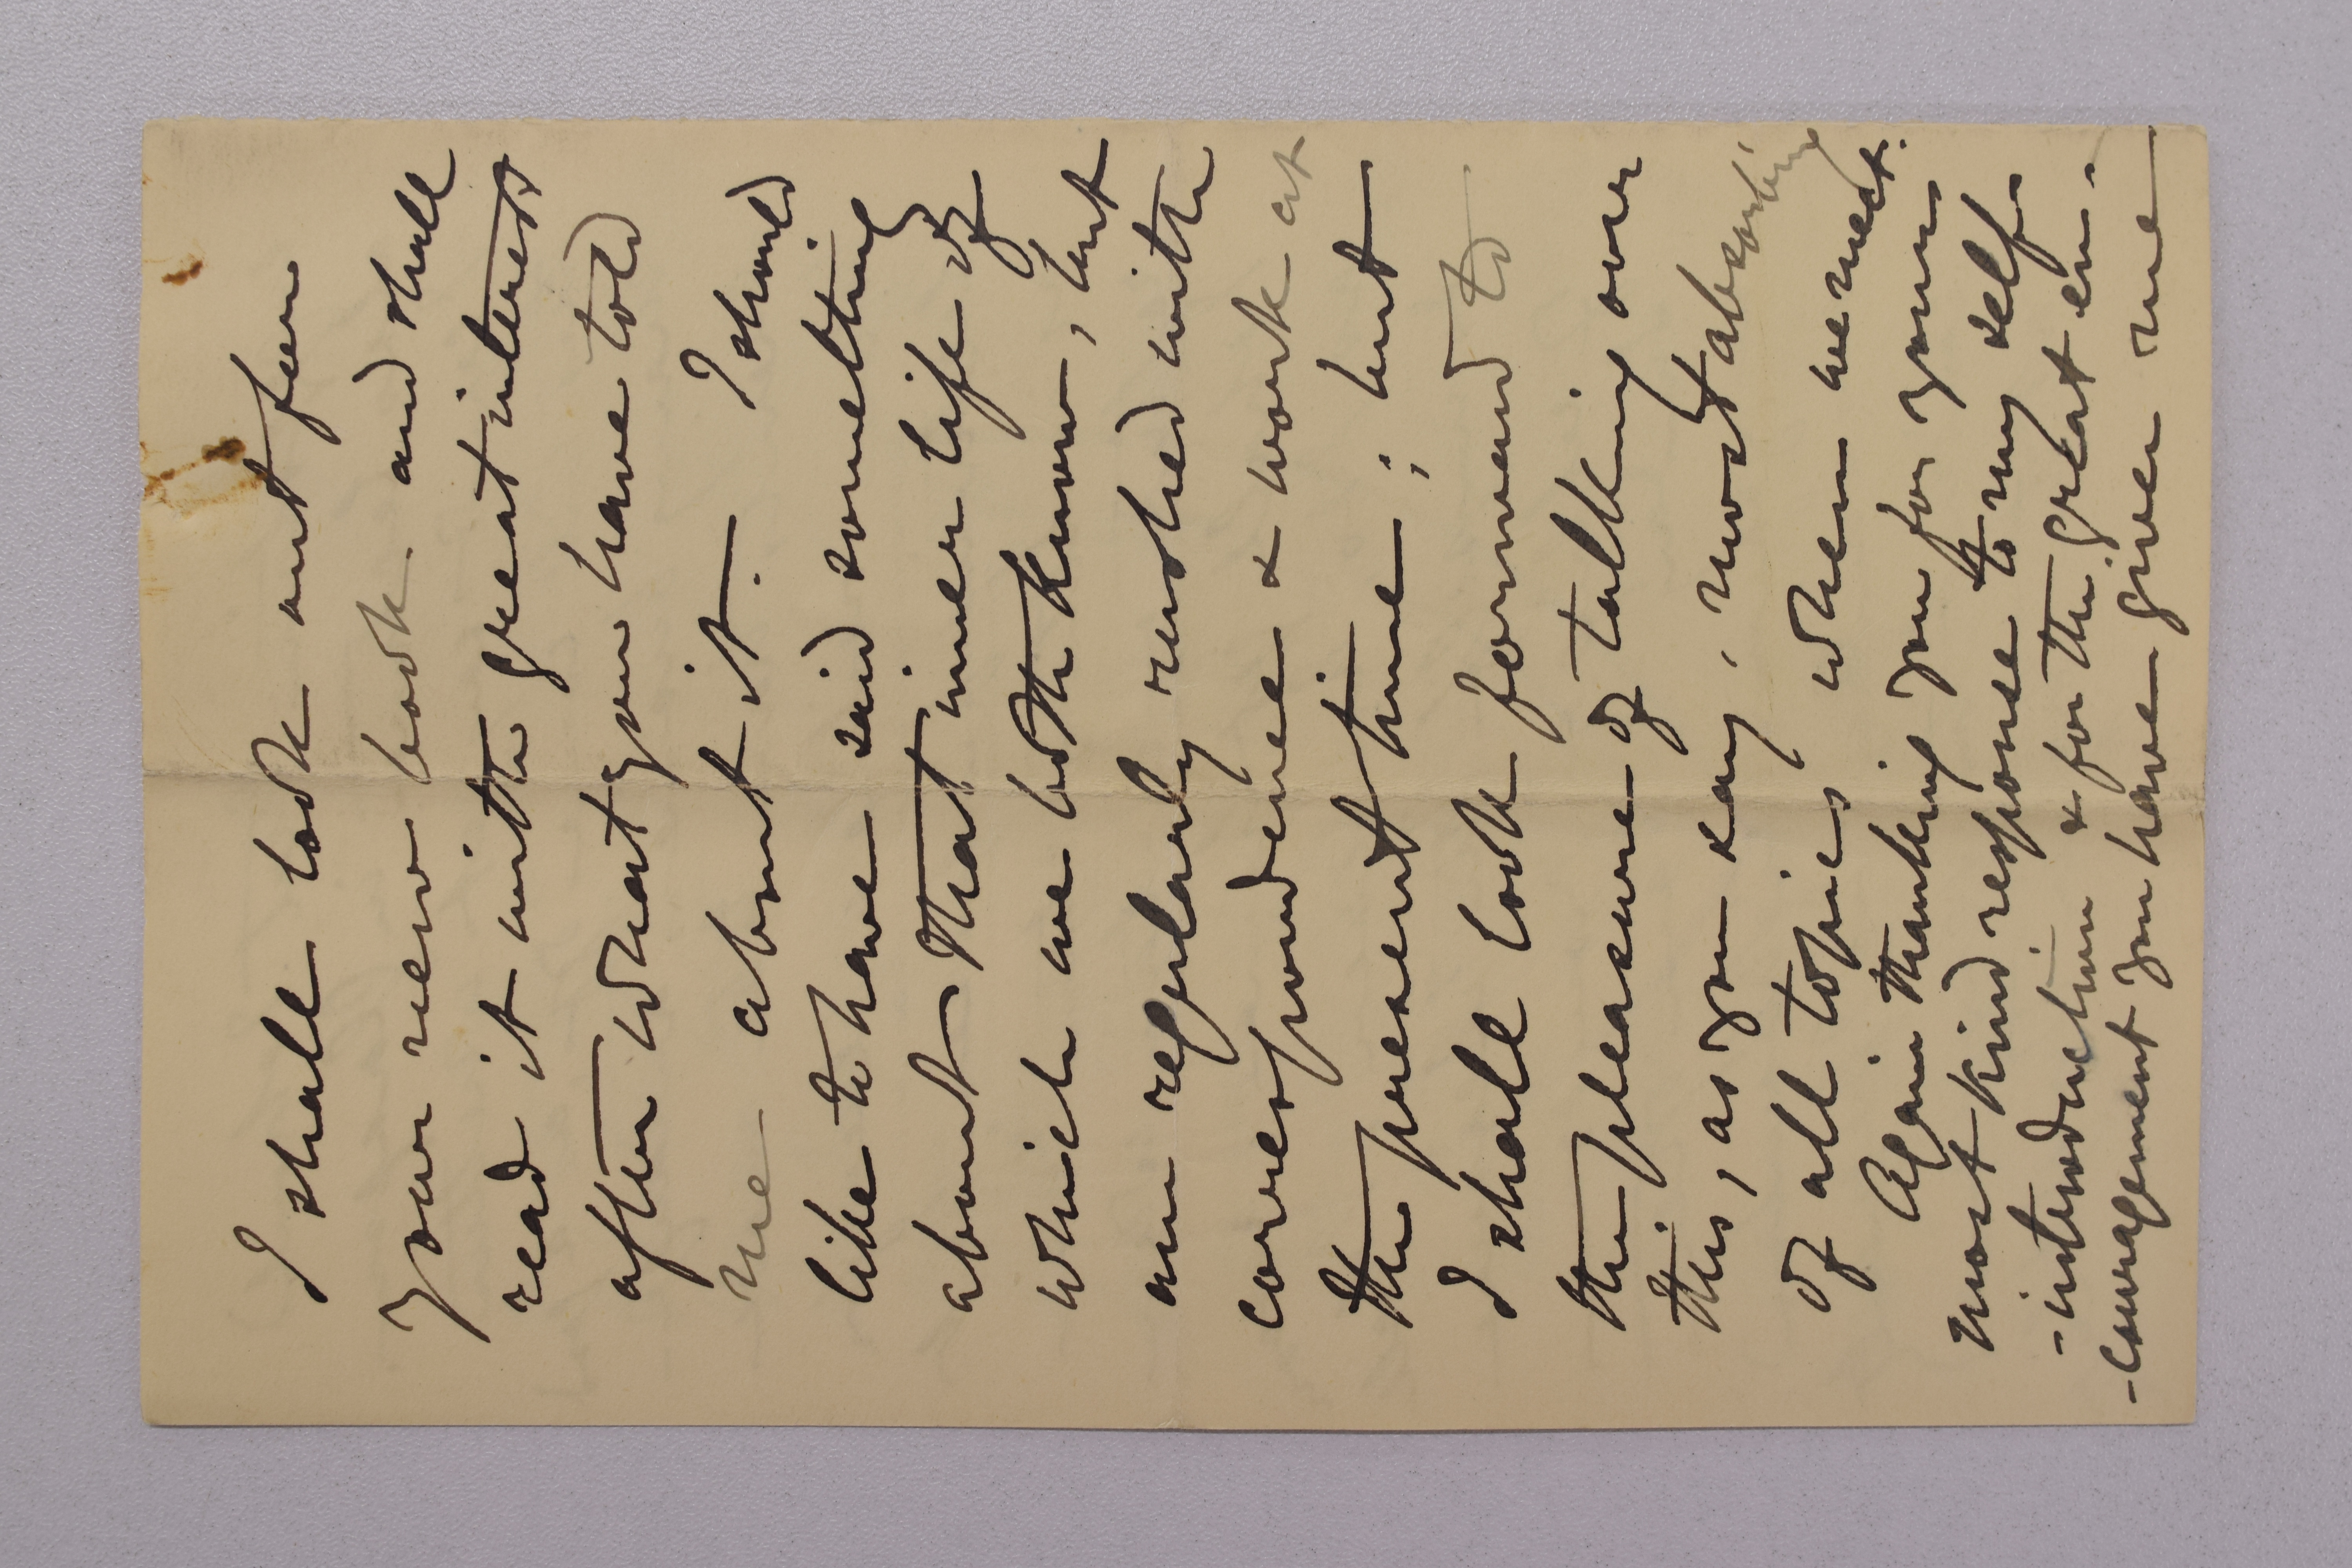 I shall look out for
your new book and shall
read it with great interest
after what you have told
me about it. I should
like to have said something
about that inner life of
which we both know, but
am regularly rushed with
correspondence & work at
the present time; but
I shall look forward to
the pleasure of talking over
this, as you say, most absorbing
of all topics when we meet.
Again thanking you for your
most kind response to my self
-introduction & for the great en-
-couragement you have given me